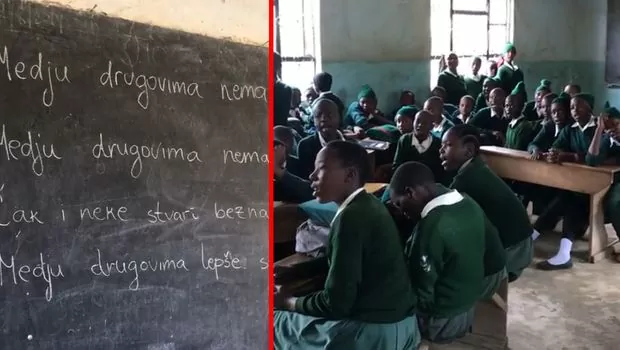 Medju drugovima nema
Medju drugovima nema
Čak i neke stvari bezna
Medju drugovima lepše s